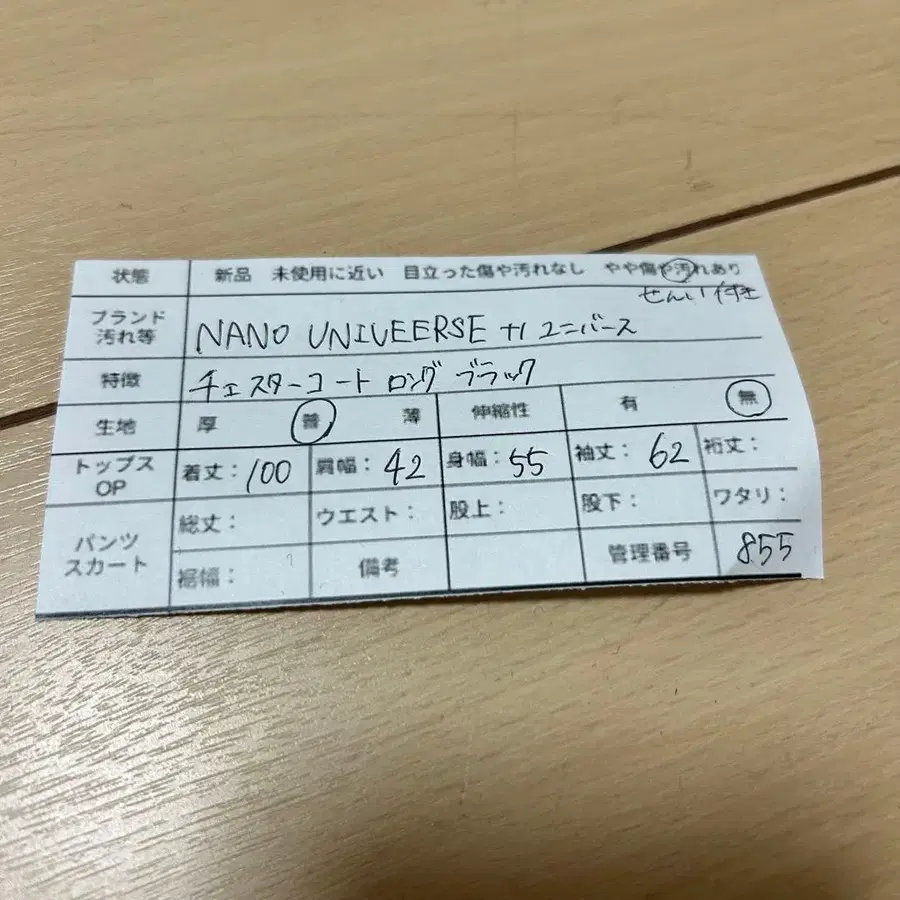 状態 新品 未使用に近い 目立った傷や汚れなし やや傷や汚れあり
せんい付き
ブランド 汚れ等 NANO UNIVEERSE ナノユニバース
特徴 チェスターコート ロング ブラック
生地 厚 普 薄 伸縮性 有 無
トップス OP 着丈：100 肩幅：42 身幅：55 袖丈：62 裄丈：
パンツ スカート 総丈： ウエスト： 股上： 股下： ワタリ：
裾幅： 備考 管理番号 855